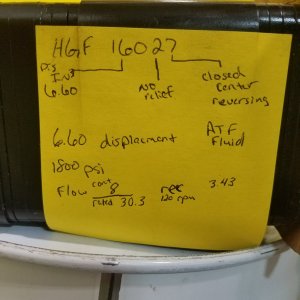 HGF 16027
Dis
In³
6.60
No
relief
closed
center
reversing
6.60 displacement
ATF
Fluid
1800 psi
Flow cont 8
rated 30.3
rec
120 rpm
3.43